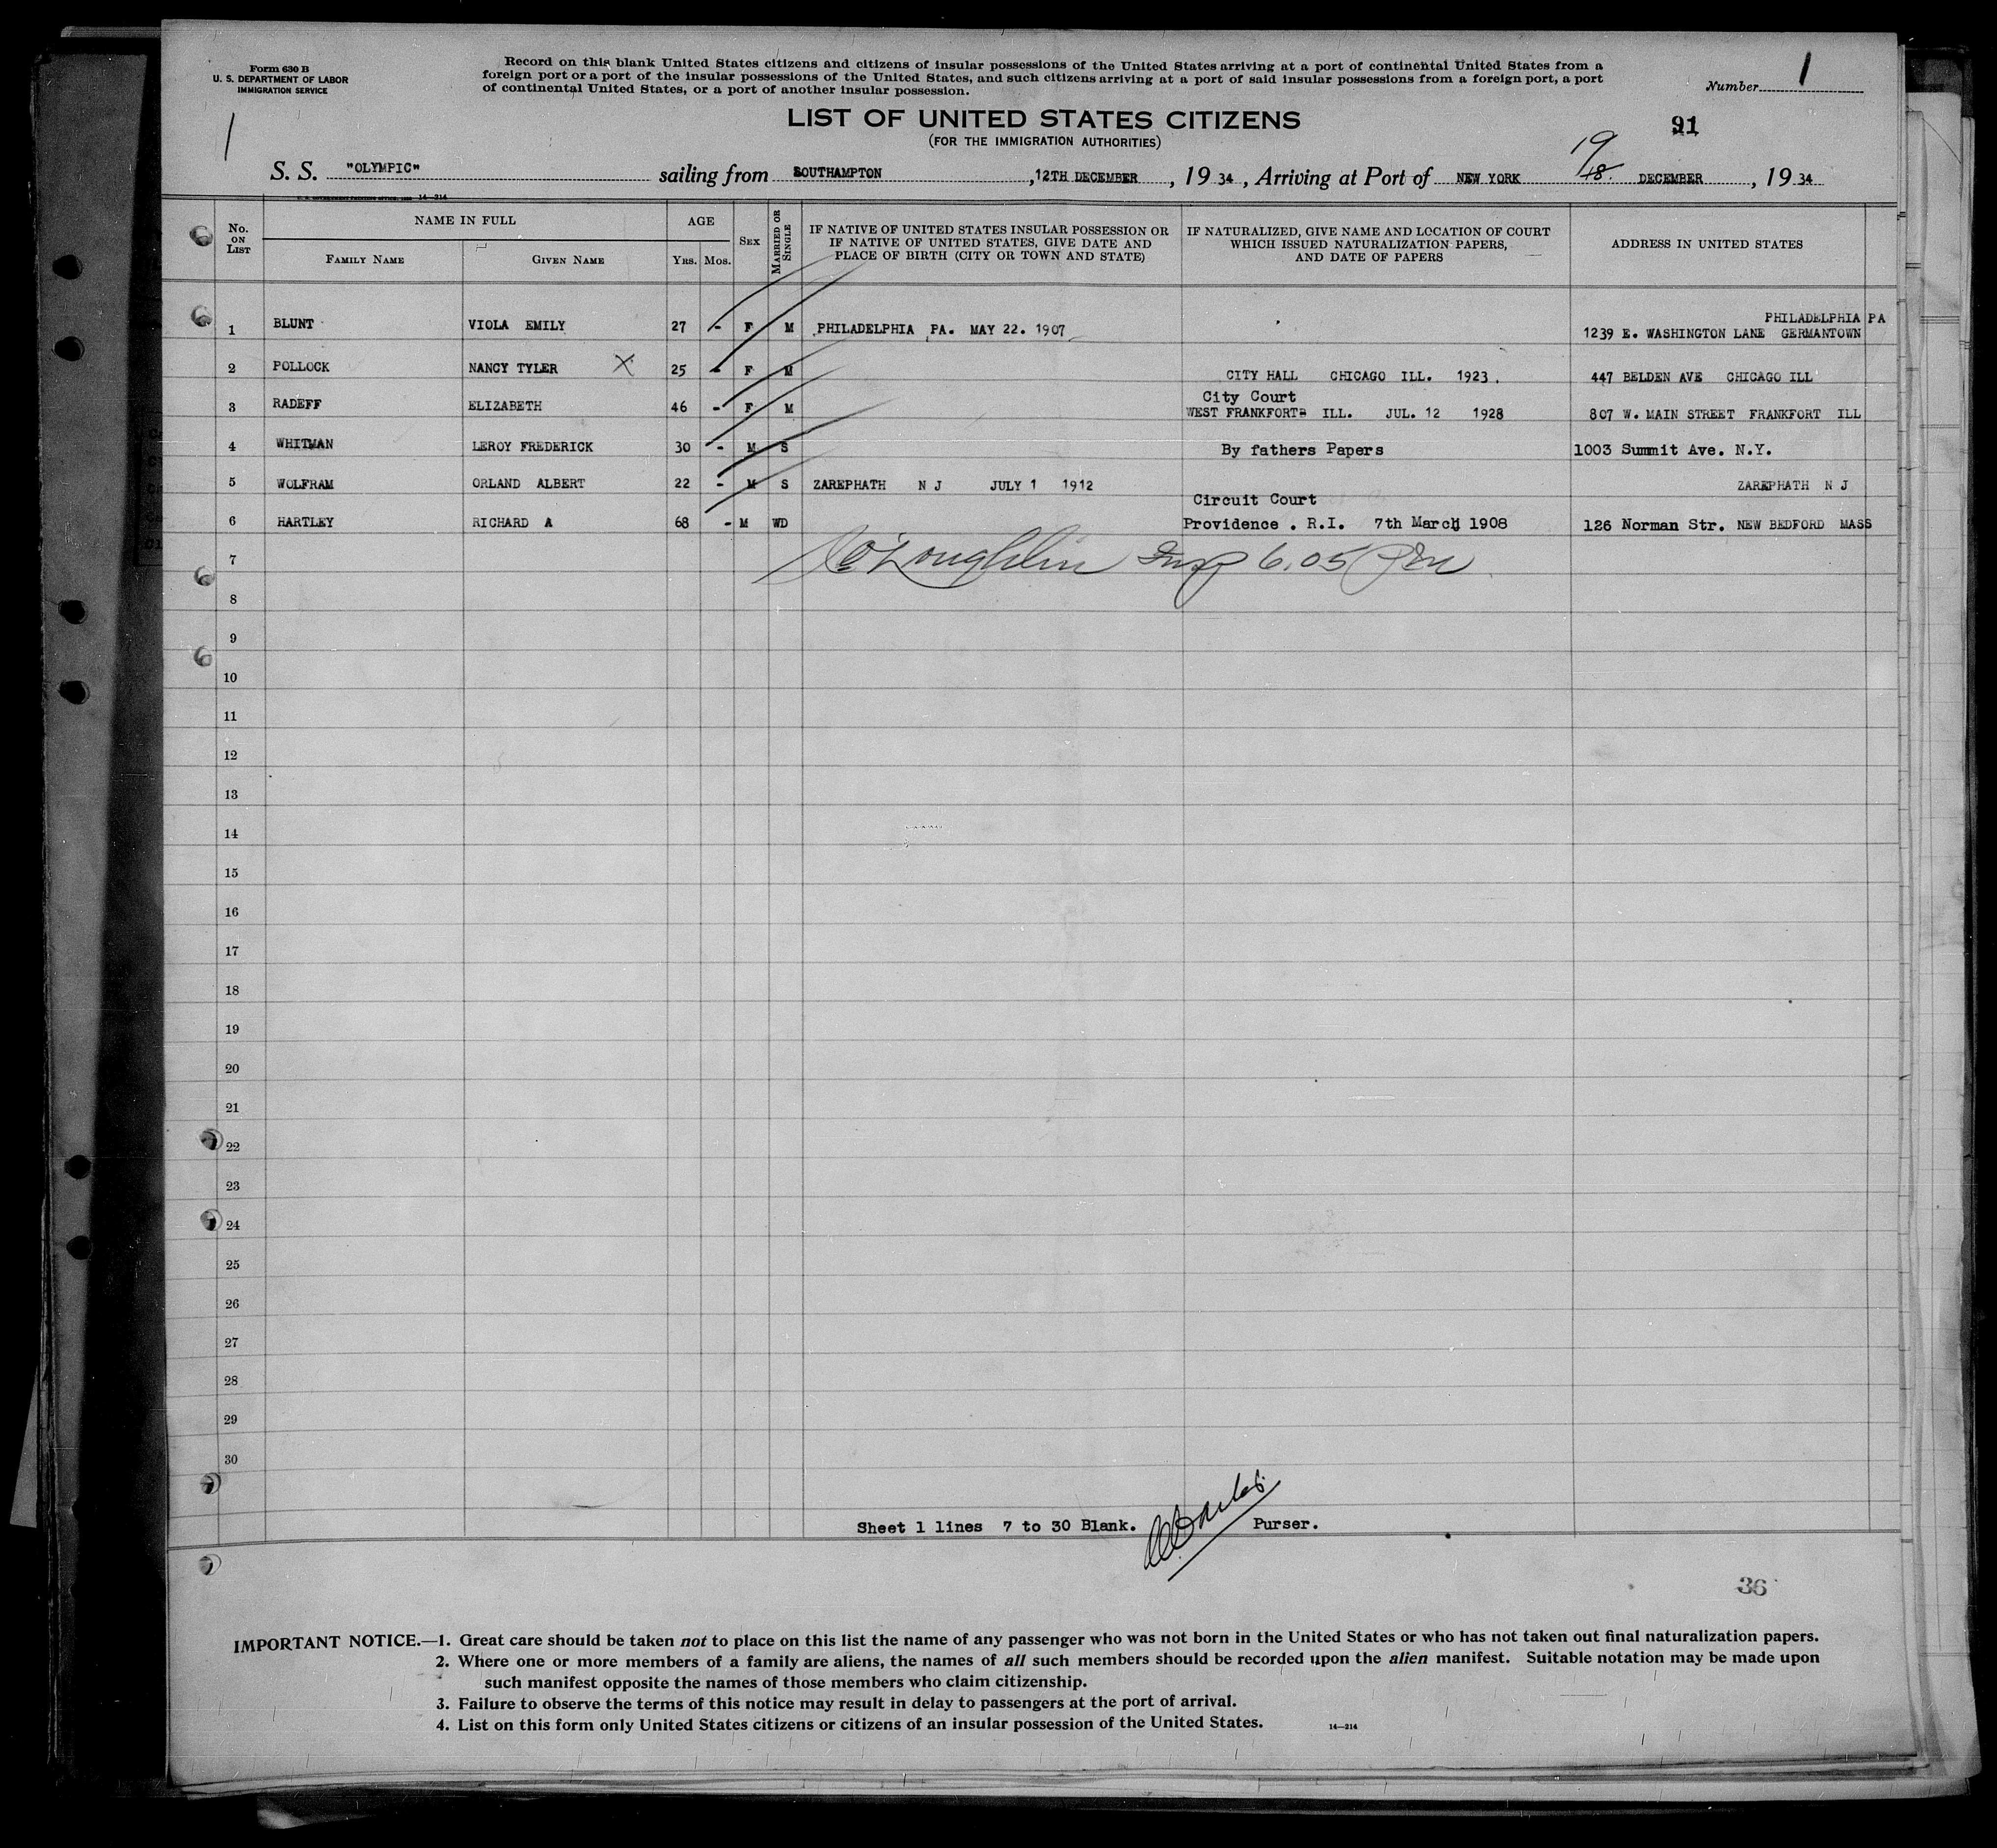 Form 630 B
U. S. DEPARTMENT OF LABOR
IMMIGRATION SERVICE
Record on this blank United States citizens and citizens of insular possessions of the United States arriving at a port of continental United States from a
foreign port or a port of the insular possessions of the United States, and such citizens arriving at a port of said insular possessions from a foreign port, a port
of continental United States, or a port of another insular possession.
Number 1
LIST OF UNITED STATES CITIZENS
(FOR THE IMMIGRATION AUTHORITIES)
91
1
S. S. "OLYMPIC" sailing from SOUTHAMPTON , 12TH DECEMBER , 19 34 , Arriving at Port of NEW YORK 19 18. DECEMBER , 19 34
14—214
No. ON LIST
NAME IN FULL
FAMILY NAME
GIVEN NAME
AGE
YRS. MOS.
SEX
MARRIED OR SINGLE
IF NATIVE OF UNITED STATES INSULAR POSSESSION OR
IF NATIVE OF UNITED STATES, GIVE DATE AND
PLACE OF BIRTH (CITY OR TOWN AND STATE)
IF NATURALIZED, GIVE NAME AND LOCATION OF COURT
WHICH ISSUED NATURALIZATION PAPERS,
AND DATE OF PAPERS
ADDRESS IN UNITED STATES
PHILADELPHIA PA
1 BLUNT VIOLA EMILY 27 - F M PHILADELPHIA PA. MAY 22. 1907 1239 E. WASHINGTON LANE GERMANTOWN
2 POLLOCK NANCY TYLER X 25 - F M CITY HALL CHICAGO ILL. 1923. 447 BELDEN AVE CHICAGO ILL
City Court
3 RADEFF ELIZABETH 46 - F M WEST FRANKFORT ILL. JUL. 12 1928 807 W. MAIN STREET FRANKFORT ILL
4 WHITMAN LEROY FREDERICK 30 - M S By fathers Papers 1003 Summit Ave. N.Y.
5 WOLFRAM ORLAND ALBERT 22 - M S ZAREPHATH N J JULY 1 1912 ZAREPHATH N J
Circuit Court
6 HARTLEY RICHARD A 68 - M WD Providence . R.I. 7th March 1908 126 Norman Str. NEW BEDFORD MASS
7 O'Loughlin Insp 6.05 Pm
8
9
10
11
12
13
14
15
16
17
18
19
20
21
22
23
24
25
26
27
28
29
30
Sheet 1 lines 7 to 30 Blank. Purser.
36
IMPORTANT NOTICE.—1. Great care should be taken not to place on this list the name of any passenger who was not born in the United States or who has not taken out final naturalization papers.
2. Where one or more members of a family are aliens, the names of all such members should be recorded upon the alien manifest. Suitable notation may be made upon
such manifest opposite the names of those members who claim citizenship.
3. Failure to observe the terms of this notice may result in delay to passengers at the port of arrival.
4. List on this form only United States citizens or citizens of an insular possession of the United States. 14—214